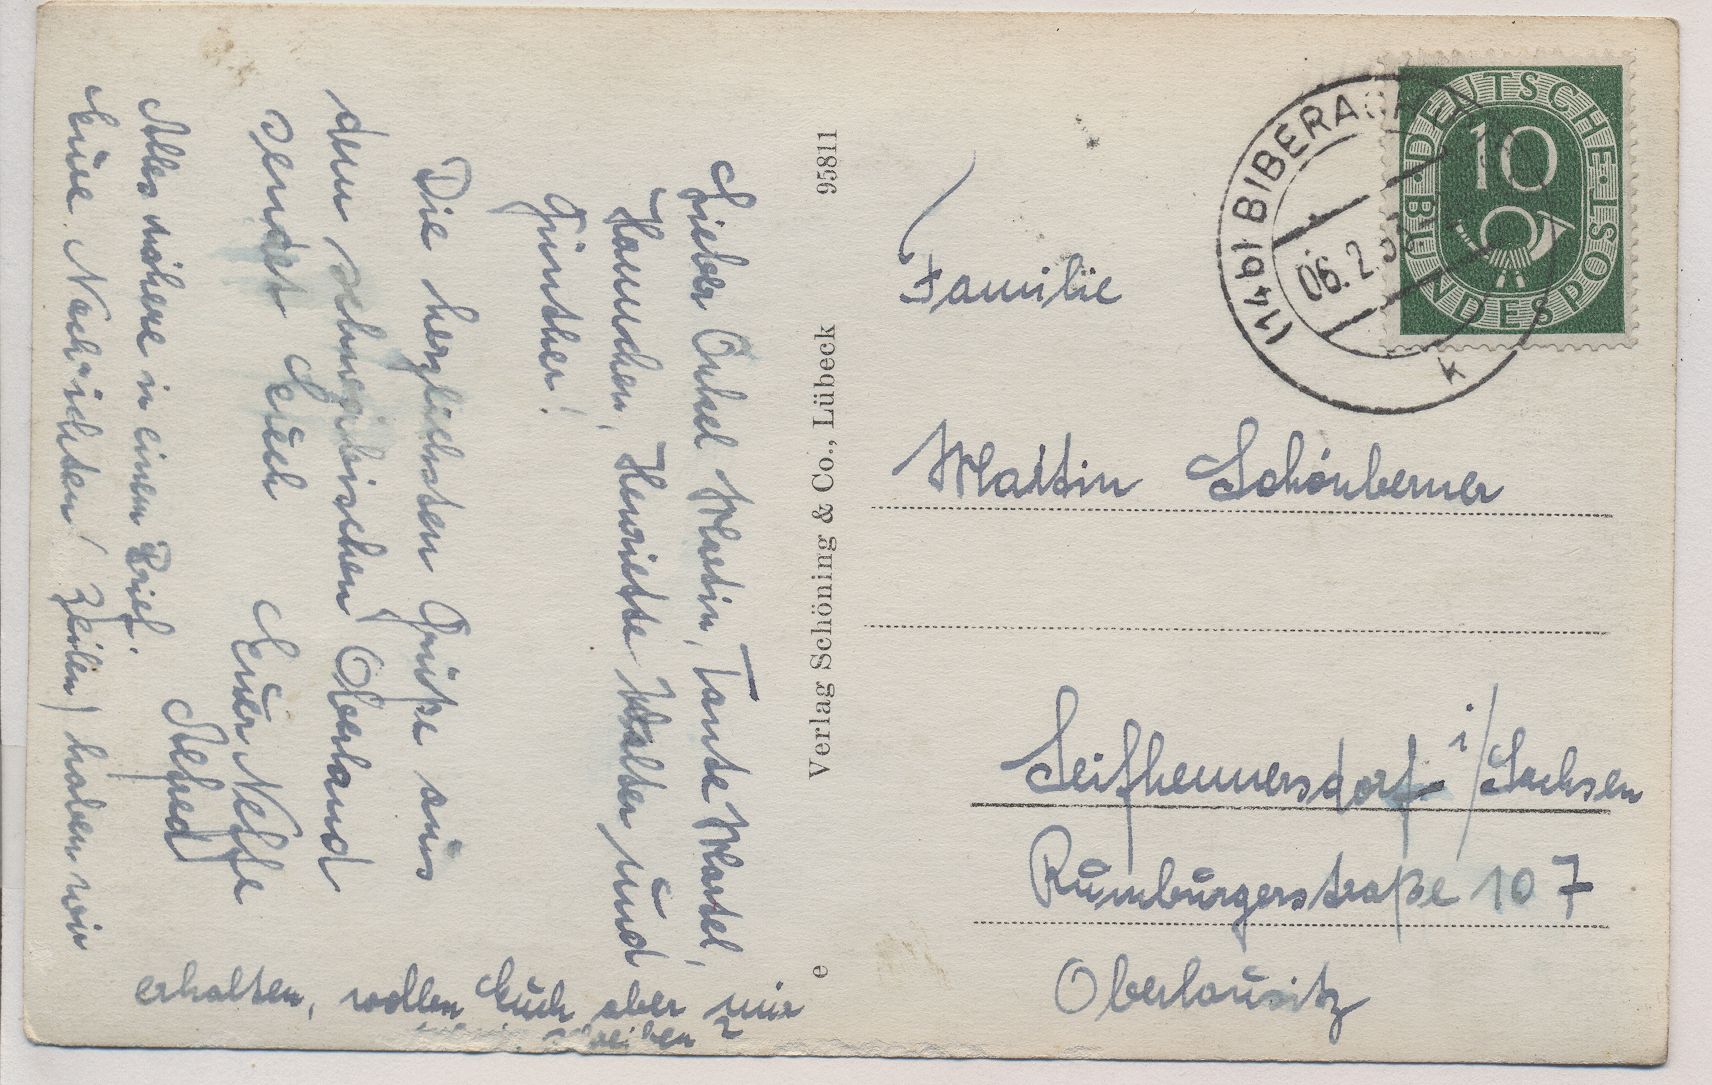 Lieber Onkel Martin, Tante Martel,
Hannchen, Henriette Walter und
Günther!
Die herzlichsten Grüße aus
dem schwäbischen Oberland
sendet Euch Euer Neffe
Alfred
Alles nähere in einem Brief.
Eure Nachrichten (Zeilen) haben wir
erhalten, wollen Euch aber nur
schreiben
Verlag Schöning & Co., Lübeck
95811
e
(14b) BIBERACH
06.2.53
k
DEUTSCHE BUNDESPOST
10
Familie
Martin Schönberner
Seifhennersdorf i/Sachsen
Rumburgerstraße 107
Oberlausitz